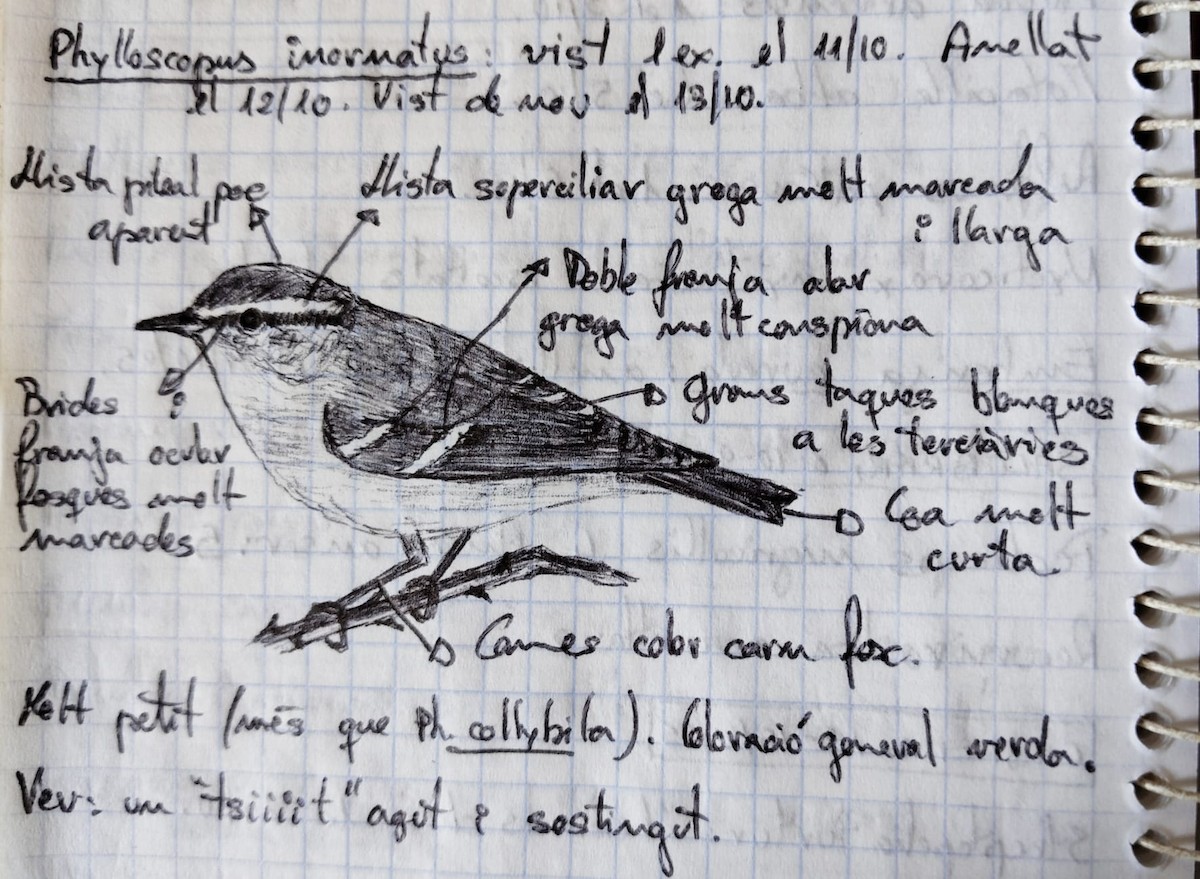 Phylloscopus inornatus: vist 1 ex. el 11/10. Anellat
el 12/10. Vist de nou el 13/10.
Llista pileal poc
aparent
Llista superciliar groga molt marcada
i llarga
Doble franja alar
groga molt conspícua
Brides
i
franja ocular
fosques molt
marcades
Grans taques blanques
a les terciàries
Coa molt
curta
Cames color carn fosc.
Molt petit (més que Ph. collybita). Coloració general verda.
Veu: un "tsiiiit" agut i sostingut.